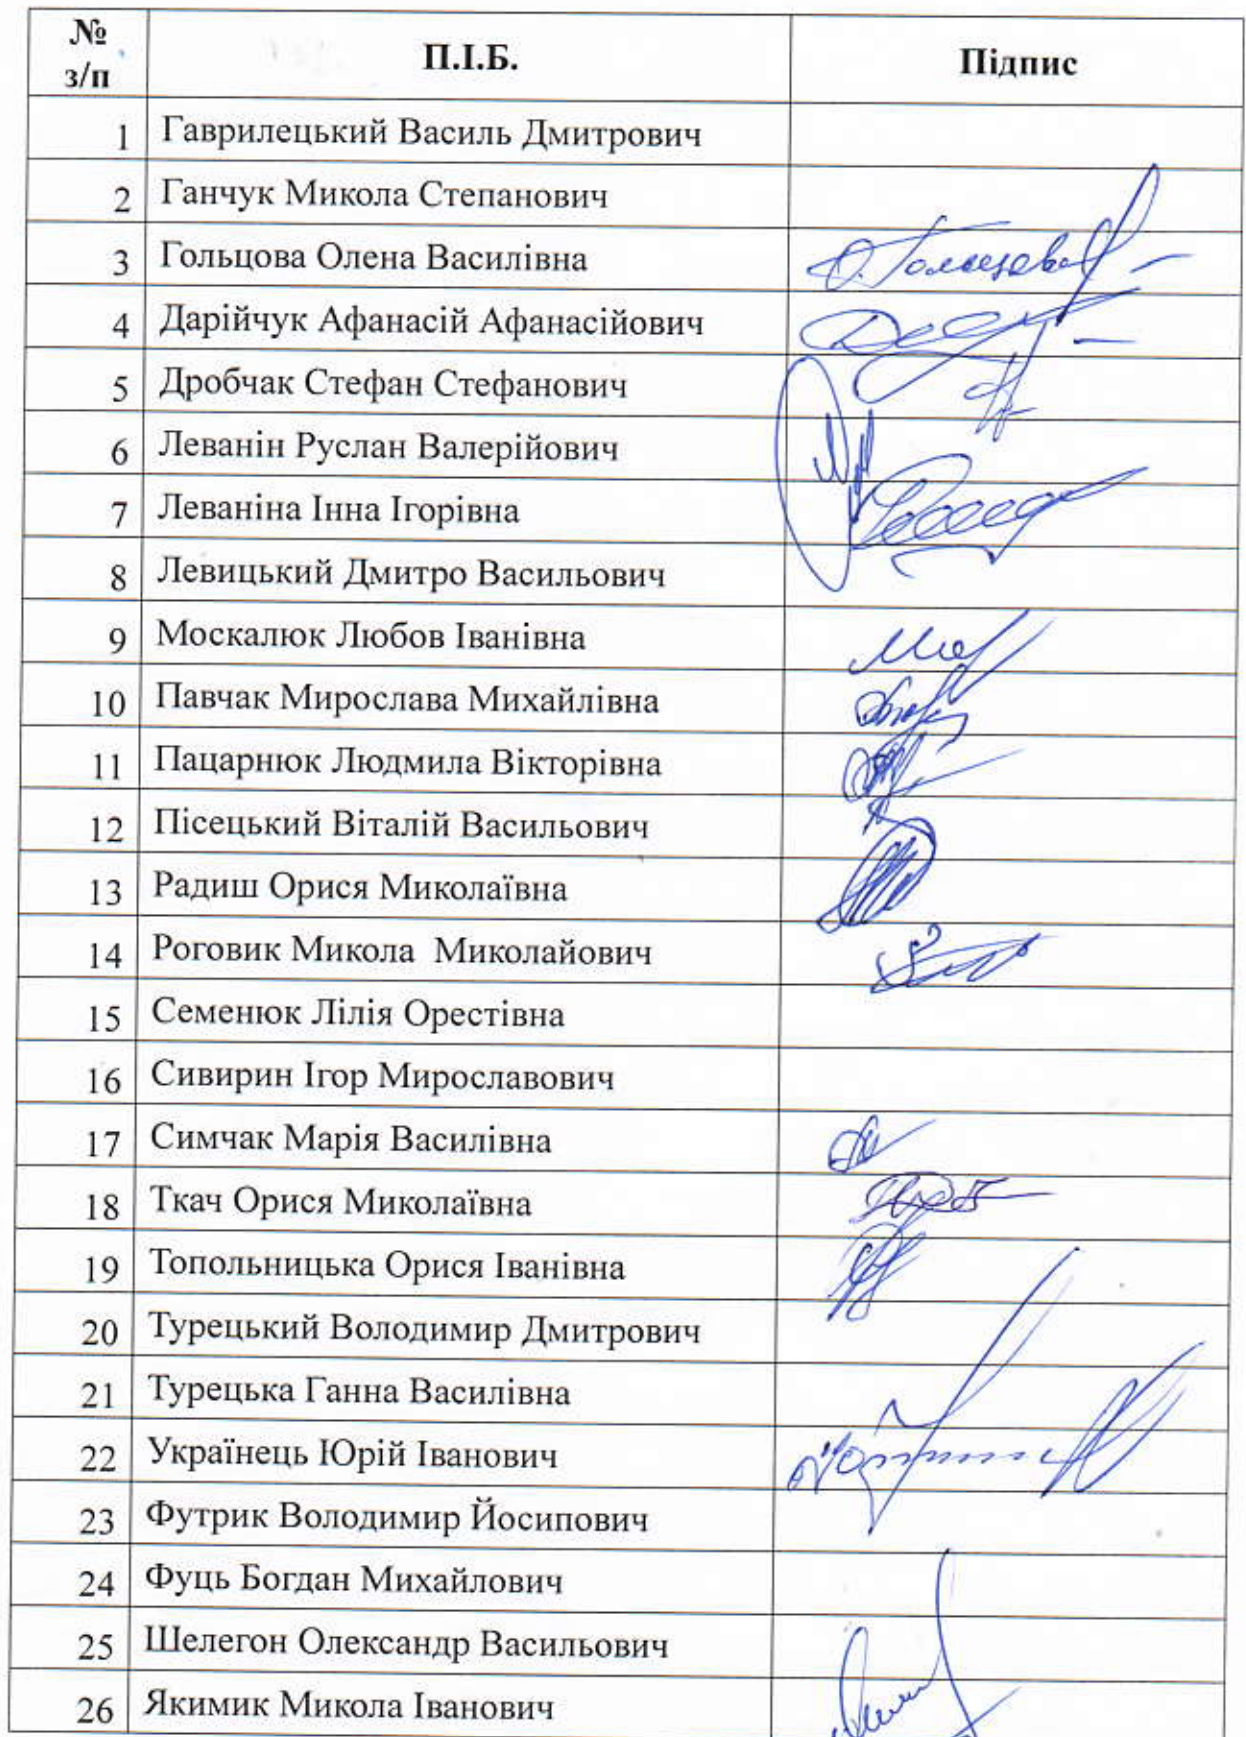 № з/п П.І.Б. Підпис
1 Гаврилецький Василь Дмитрович
2 Ганчук Микола Степанович
3 Гольцова Олена Василівна О. Гольцова
4 Дарійчук Афанасій Афанасійович
5 Дробчак Стефан Стефанович
6 Леванін Руслан Валерійович
7 Леваніна Інна Ігорівна
8 Левицький Дмитро Васильович
9 Москалюк Любов Іванівна
10 Павчак Мирослава Михайлівна
11 Пацарнюк Людмила Вікторівна
12 Пісецький Віталій Васильович
13 Радиш Орися Миколаївна
14 Роговик Микола Миколайович
15 Семенюк Лілія Орестівна
16 Сивирин Ігор Мирославович
17 Симчак Марія Василівна
18 Ткач Орися Миколаївна
19 Топольницька Орися Іванівна
20 Турецький Володимир Дмитрович
21 Турецька Ганна Василівна
22 Українець Юрій Іванович
23 Футрик Володимир Йосипович
24 Фуць Богдан Михайлович
25 Шелегон Олександр Васильович
26 Якимик Микола Іванович